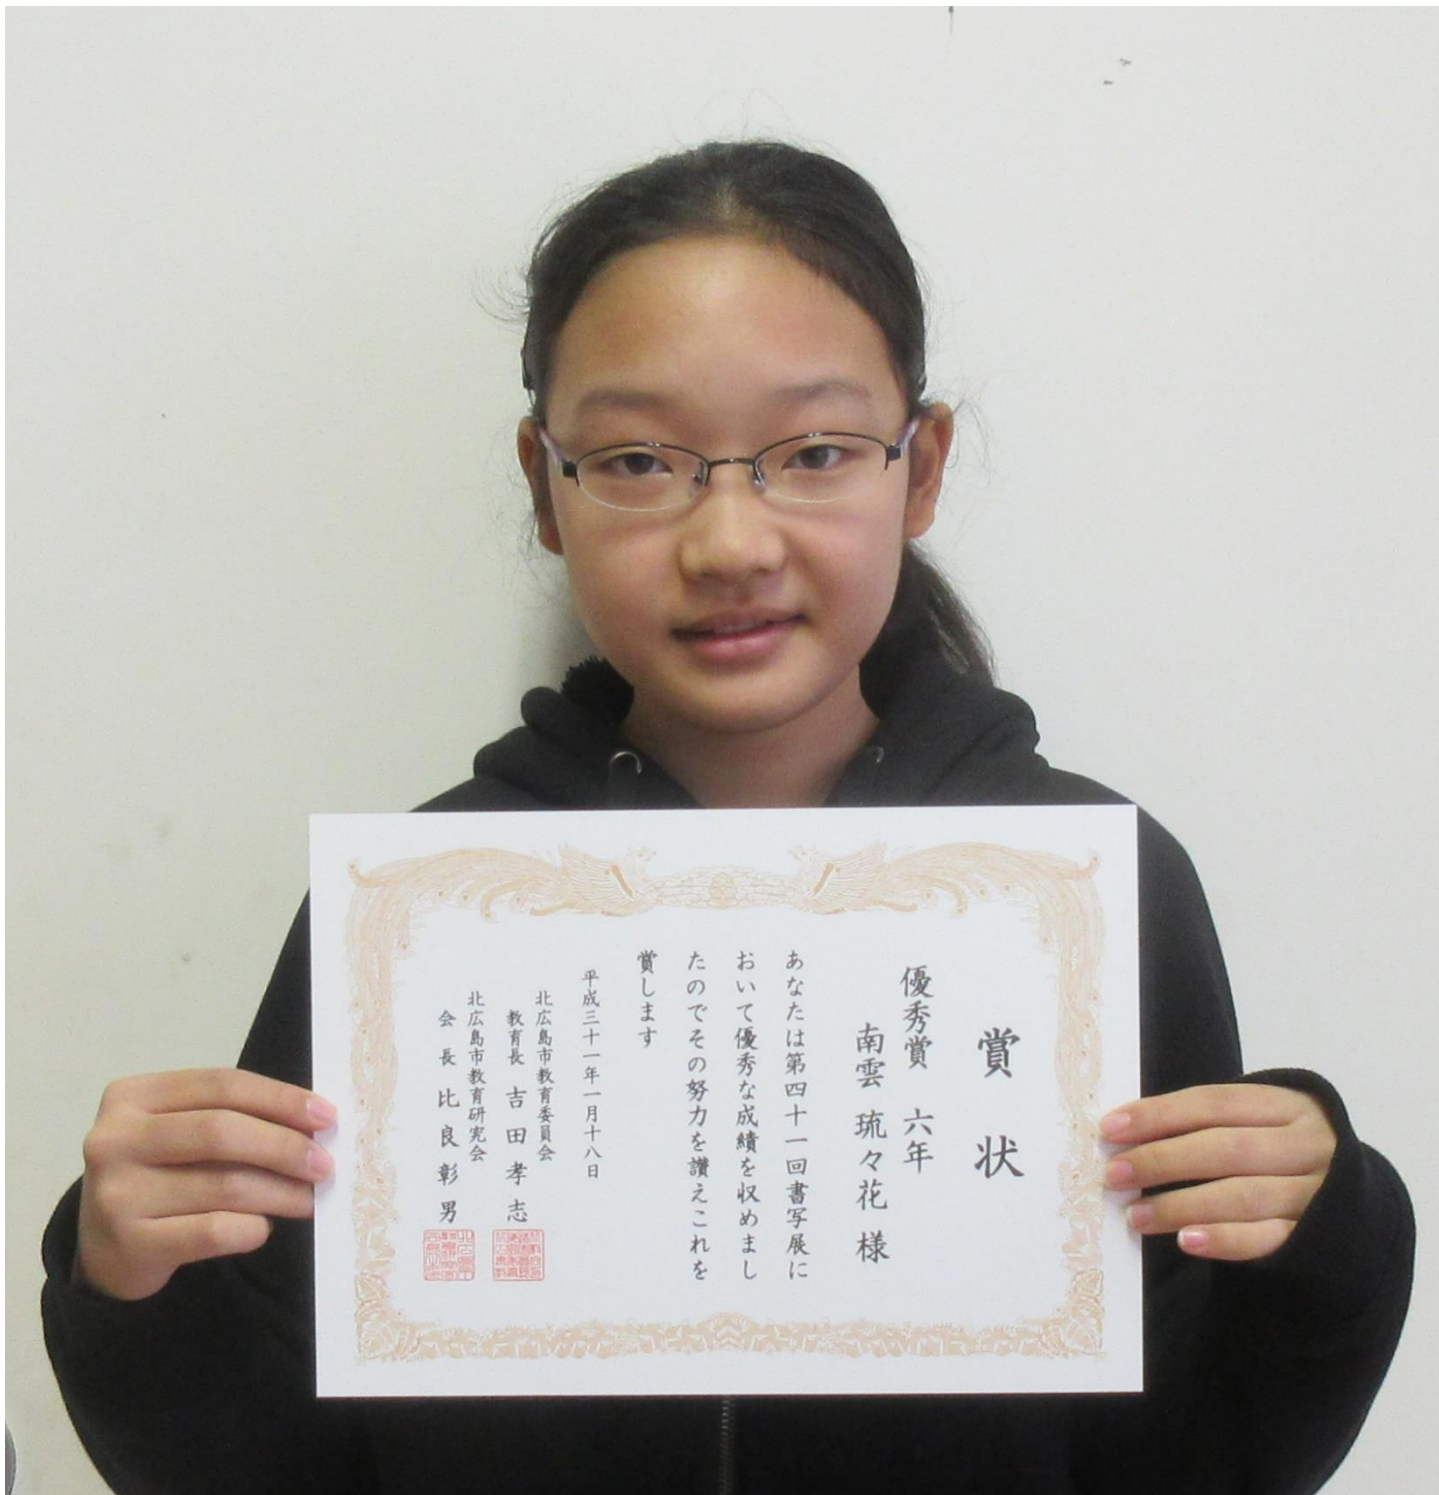 賞状
優秀賞 六年
南雲 琉々花 様
あなたは第四十一回書写展に
おいて優秀な成績を収めまし
たのでその努力を讃えこれを
賞します
平成三十一年一月十八日
北広島市教育委員会
教育長 吉田孝志
北広島市教育研究会
会長 比良彰男